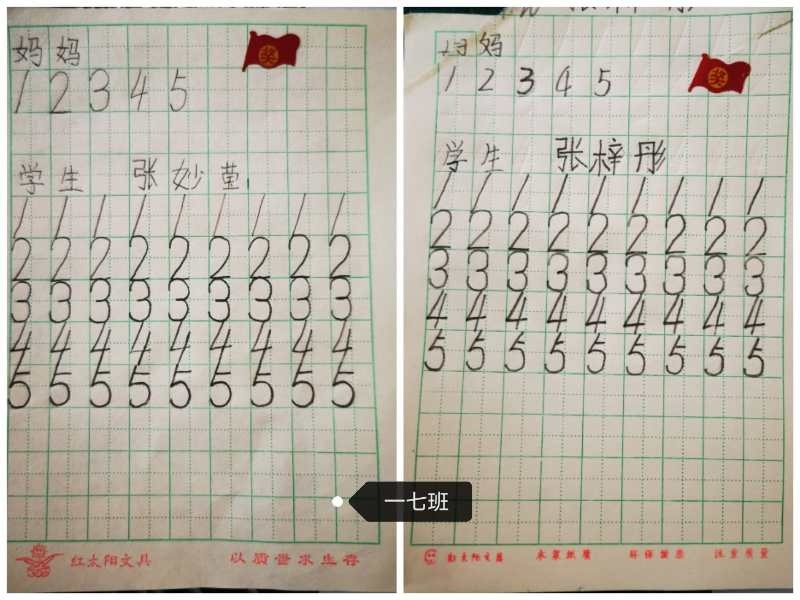 妈妈
奖
1 2 3 4 5
学生 张妙莹
1 1 1 1 1 1 1 1 1
2 2 2 2 2 2 2 2 2
3 3 3 3 3 3 3 3 3
4 4 4 4 4 4 4 4 4
5 5 5 5 5 5 5 5 5
红太阳文具 以质量求生存
妈妈
奖
1 2 3 4 5
学生 张梓彤
1 1 1 1 1 1 1 1 1
2 2 2 2 2 2 2 2 2
3 3 3 3 3 3 3 3 3
4 4 4 4 4 4 4 4 4
5 5 5 5 5 5 5 5 5
注重质量
一七班